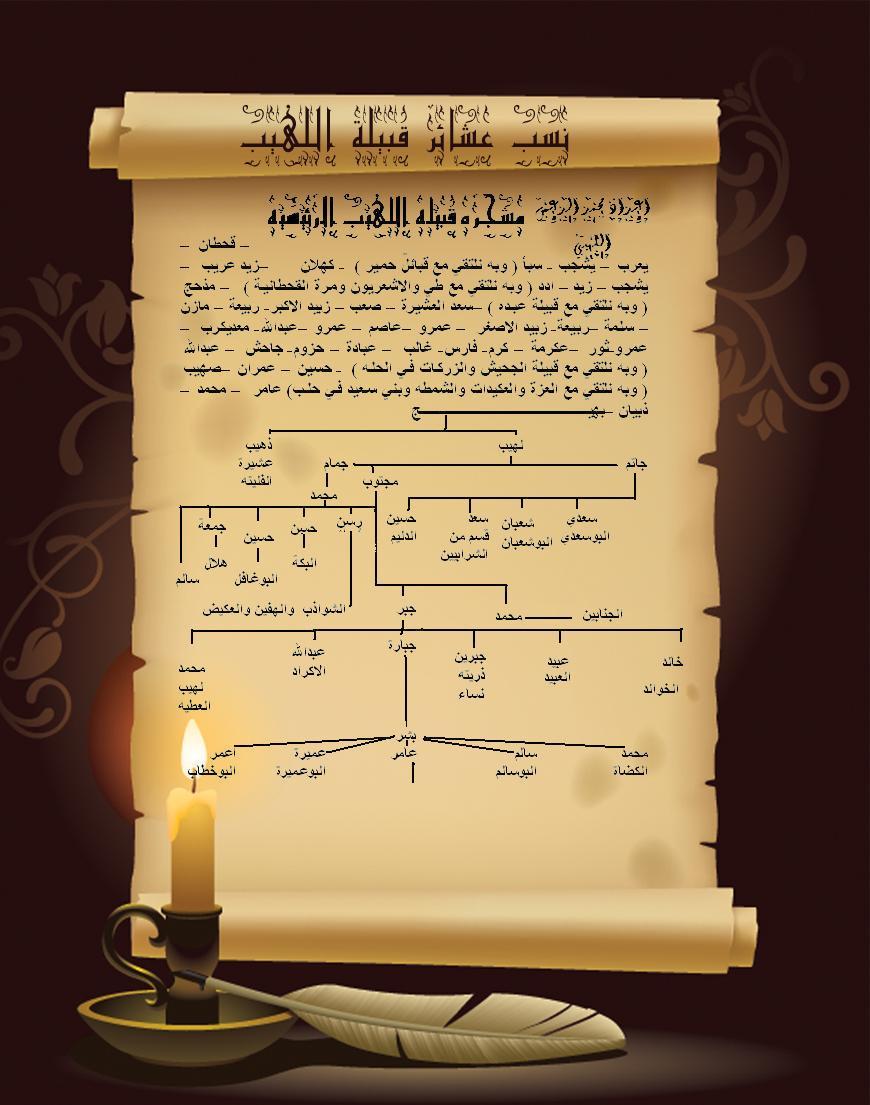 نسب عشائر قبيلة اللهيب
مشجره قبيله اللهيب الرئيسيه
– قحطان –
يعرب – يشجب - سبأ ( وبه نلتقي مع قبائل حمير ) - كهلان –زيد عريب –
يشجب – زيد – ادد ( وبه نلتقي مع طي والاشعريون ومرة القحطانية ) – مذحج
( وبه نلتقي مع قبيلة عبده ) –سعد العشيرة – صعب – زبيد الاكبر- ربيعة – مازن
– سلمة –ربيعة- زبيد الاصغر – عمرو –عاصم – عمرو –عبدالله- معديكرب –
عمرو-ثور –عكرمة – كرم- فارس- غالب – عبادة – حزوم- جاحش – عبدالله
( وبه نلتقي مع قبيلة الجحيش والزركات في الحله ) - حسين – عمران –صهيب
( وبه نلتقي مع العزة والعكيدات والشمطه وبني سعيد في حلب) عامر – محمد –
ذبيان – بهيج
لهيب ذهيب
عشيرة
الفليته
جاثم جمام
مجنوب
محمد
سعدي شعبان سعد حسين
البوسعدي البوشعبان قسم من الدليم
الشرابيين
رسن حسن حسين جمعة
البكة هلال
البوغافل سالم
الشواذب والهفين والعكيض
الجنابين محمد جبر
خالد عبيد جبرين جبارة عبدالله محمد
الخوالد العبيد ذريته الاكراد لهيب
نساء العطيه
بشر
محمد سالم عامر عميرة اعمر
الكضاة البوسالم البوعميرة البوخطاب